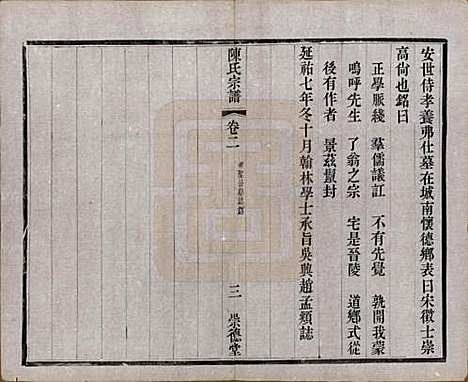 安世侍孝養弗仕墓在城南懷德鄉表曰宋徵士崇
高尙也銘曰
正學脈綫　羣儒議訌　不有先覺　孰開我蒙
嗚呼先生　了翁之宗　宅是晉陵　道鄉式從
後有作者　景茲鬣封
延祐七年冬十月翰林學士承旨吳興趙孟頫誌
陳氏宗譜　卷二　三　崇德堂